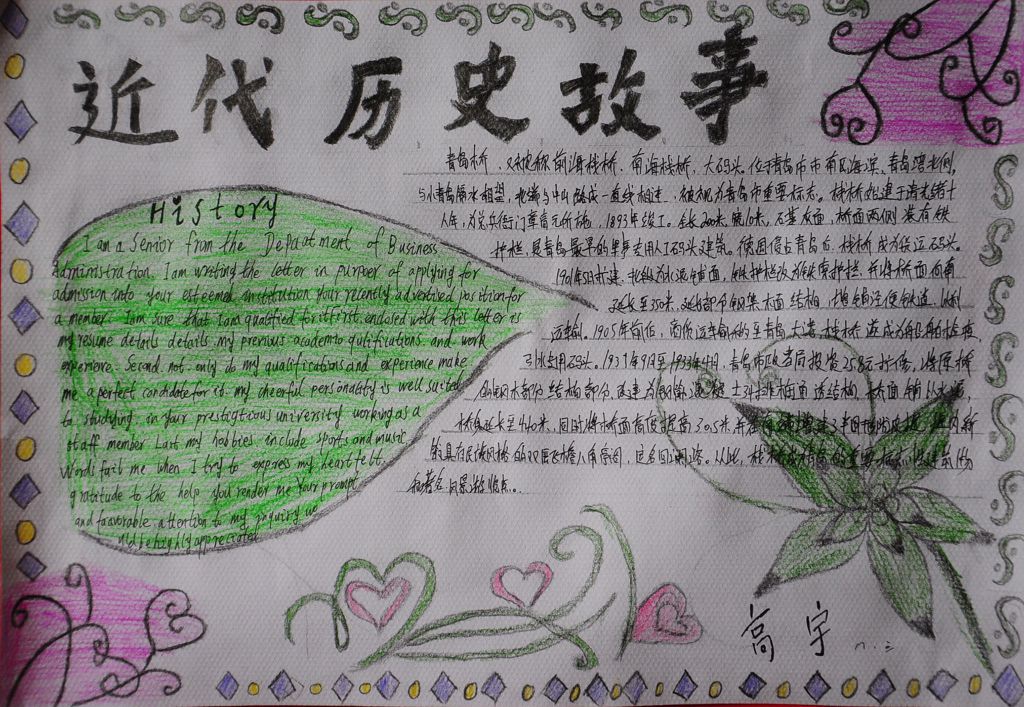 近代历史故事
History
I am a Senior from the Depaatment of Business
Administration. I am writing the letter in purpoer of applying for
admission into your esteemed institution Your recently advertised position for
a member. I am sure that I am qualified for it first. enclosed with this letter is
my resume details details my previous academic and work
experience. Second. not only do my qualifications and experience make
me a perfect candidate for it. my cheerful personality is well suited
to studying in your prestigious university working as a
staff member Last my hobbies include sports and music
Words fail me when I try to express my heart felt
gratitude to the help you render me Your prompt
and favorable attention to my inquiry wo
uld be highly appreciated
青岛栈桥、又被称前海栈桥、南海栈桥、大码头.位于青岛市市南区海滨、青岛湾北侧.
与小青岛隔水相望,北端与中山路成一直线相连.被视为青岛市重要标志。栈桥始建于清光绪十
八年,为总兵衙门章高元所埗,1893年竣工。全长200米,宽10米,石基灰面,桥面两侧装有铁
护栏,是青岛最早的军事专用人工码头建筑。德国侵占青岛后,栈桥成为货运码头。
1901年5月扩建,北段为水泥铺面,铁护栏改为铁索护栏.并将桥面向南
延长至350米.延长部分钢架木面结构,增铺轻便铁道.以利
运输。1905年前后,南侨运输移至青岛大港,栈桥遂成为船舶检疫
引水专用码头。1931年9月至1933年4月.青岛市政当局投资25.8万元,将原桥
钢架木部分结构部分,改建为钢筋混凝土 桥面透结构,桥面铺以水泥,
桥身延长至440米,同时将桥面高度提高30.5米,并在
具有民族风格的双层飞檐八角亭阁,定名回澜阁。从此,栈桥成为青岛的重要标志
和著名风景游览点。
高宇 八.三